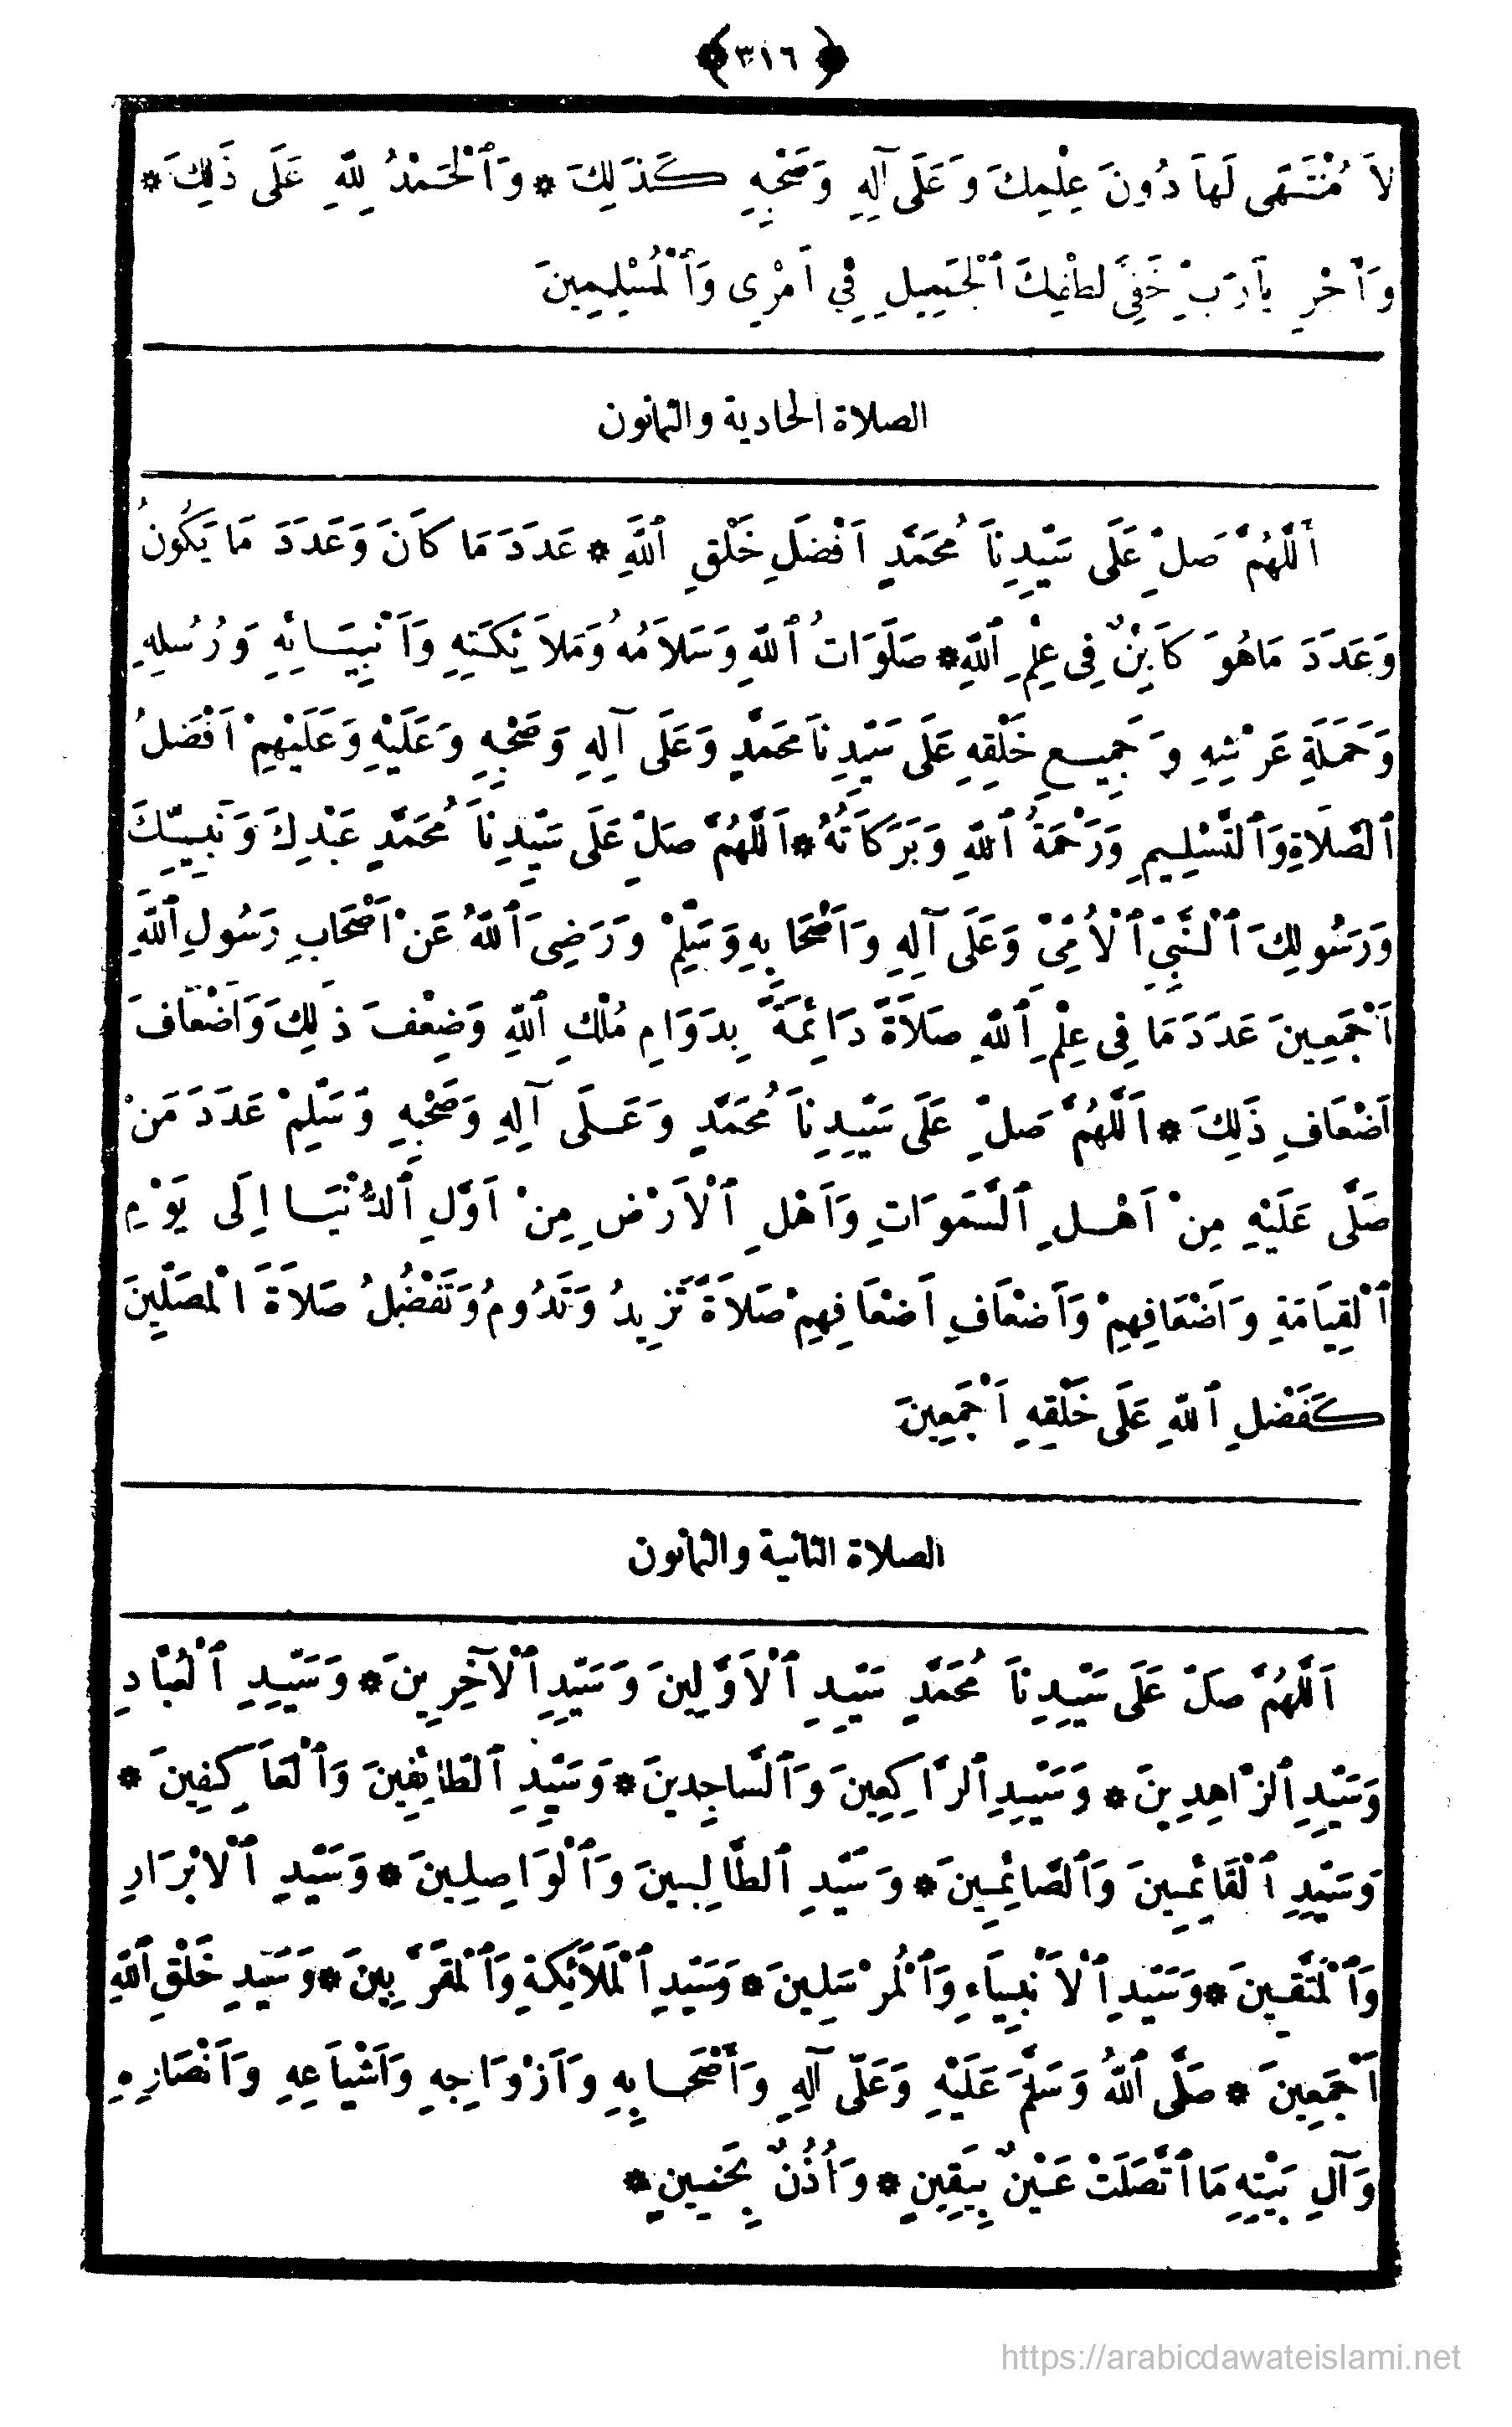 ﴿ ٣١٦ ﴾
لاَ مُنْتَهَى لَهاَ دُونَ عِلْمِكَ وَعَلَى آلِهِ وَصَحْبِهِ كَذَلِكَ * وَٱلْحَمْدُ لِلّٰهِ عَلَى ذَلِكَ *
وَأَجْرِ يَارَبِّ خَفِيَّ لُطْفِكَ ٱلْجَمِيلِ فِي اَمْرِى وَٱلْمُسْلِمِينَ
الصلاة الحادية والثمانون
أَللّٰهُمَّ صَلِّ عَلَى سَيِّدِناَ مُحَمَّدٍ اَفْضَلِ خَلْقِ ٱللّٰهِ * عَدَدَ مَا كَانَ وَعَدَدَ مَا يَكُونُ
وَعَدَدَ مَاهُوَ كَائِنٌ فِى عِلْمِ ٱللّٰهِ * صَلَوَاتُ ٱللّٰهِ وَسَلاَمُهُ وَمَلاَئِكَتِهِ وَاَنْبِيَائِهِ وَرُسُلِهِ
وَحَمَلَةِ عَرْشِهِ وَجَمِيعِ خَلْقِهِ عَلَى سَيِّدِناَ مُحَمَّدٍ وَعَلَى آلِهِ وَصَحْبِهِ وَعَلَيْهِ وَعَلَيْهِمْ اَفْضَلُ
ٱلصَّلاَةِ وَٱلتَّسْلِيمِ وَرَحْمَةُ ٱللّٰهِ وَبَرَكَاتُهُ * اَللّٰهُمَّ صَلِّ عَلَى سَيِّدِناَ مُحَمَّدٍ عَبْدِكَ وَنَبِيِّكَ
وَرَسُولِكَ ٱلنَّبِيِّ ٱلْأُمِّيِّ وَعَلَى آلِهِ وَاَصْحَابِهِ وَسَلِّمْ وَرَضِىَ ٱللّٰهُ عَنْ اَصْحَابِ رَسُولِ ٱللّٰهِ
اَجْمَعِينَ عَدَدَ مَا فِى عِلْمِ ٱللّٰهِ صَلاَةً دَائِمَةً بِدَوَامِ مُلْكِ ٱللّٰهِ وَضِعْفَ ذَلِكَ وَاَضْعَافَ
اَضْعَافِ ذَلِكَ * اَللّٰهُمَّ صَلِّ عَلَى سَيِّدِناَ مُحَمَّدٍ وَعَلَى آلِهِ وَصَحْبِهِ وَسَلِّمْ عَدَدَ مَنْ
صَلَّى عَلَيْهِ مِنْ اَهْلِ ٱلسَّمَوَاتِ وَاَهْلِ ٱلْاَرْضِ مِنْ اَوَّلِ ٱلدُّنْيَا اِلَى يَوْمِ
ٱلْقِيَامَةِ وَاَضْعَافِهِمْ وَاَضْعَافِ اَضْعَافِهِمْ صَلاَةً تَزِيدُ وَتَدُومُ وَتَفْضُلُ صَلاَةَ الْمُصَلِّينَ
كَفَضْلِ ٱللّٰهِ عَلَى خَلْقِهِ اَجْمَعِينَ
الصلاة الثانية والثمانون
اَللّٰهُمَّ صَلِّ عَلَى سَيِّدِناَ مُحَمَّدٍ سَيِّدِ ٱلْاَوَّلِينَ وَسَيِّدِ ٱلْآخِرِينَ * وَسَيِّدِ ٱلْعُبَّادِ
وَسَيِّدِ ٱلزَّاهِدِينَ * وَسَيِّدِ ٱلرَّاكِعِينَ وَٱلسَّاجِدِينَ * وَسَيِّدِ ٱلطَّائِفِينَ وَٱلْعَاكِفِينَ *
وَسَيِّدِ ٱلْقَائِمِينَ وَٱلصَّائِمِينَ * وَسَيِّدِ ٱلطَّالِبِينَ وَٱلْوَاصِلِينَ * وَسَيِّدِ ٱلْابْرَارِ
وَٱلْمُتَّقِينَ * وَسَيِّدِ ٱلْاَنْبِيَاءِ وَٱلْمُرْسَلِينَ * وَسَيِّدِ ٱلْمَلاَئِكَةِ وَٱلْمُقَرَّبِينَ * وَسَيِّدِ خَلْقِ ٱللّٰهِ
اَجْمَعِينَ * صَلَّى ٱللّٰهُ وَسَلَّمَ عَلَيْهِ وَعَلَى آلِهِ وَأَصْحَابِهِ وَاَزْوَاجِهِ وَاَشْيَاعِهِ وَاَنْصَارِهِ
وَآلِ بَيْتِهِ مَا ٱتَّصَلَتْ عَيْنٌ بِيَقِينٍ * وَأُذُنٌ بِحَنِينٍ *
https://arabicdawateislami.net